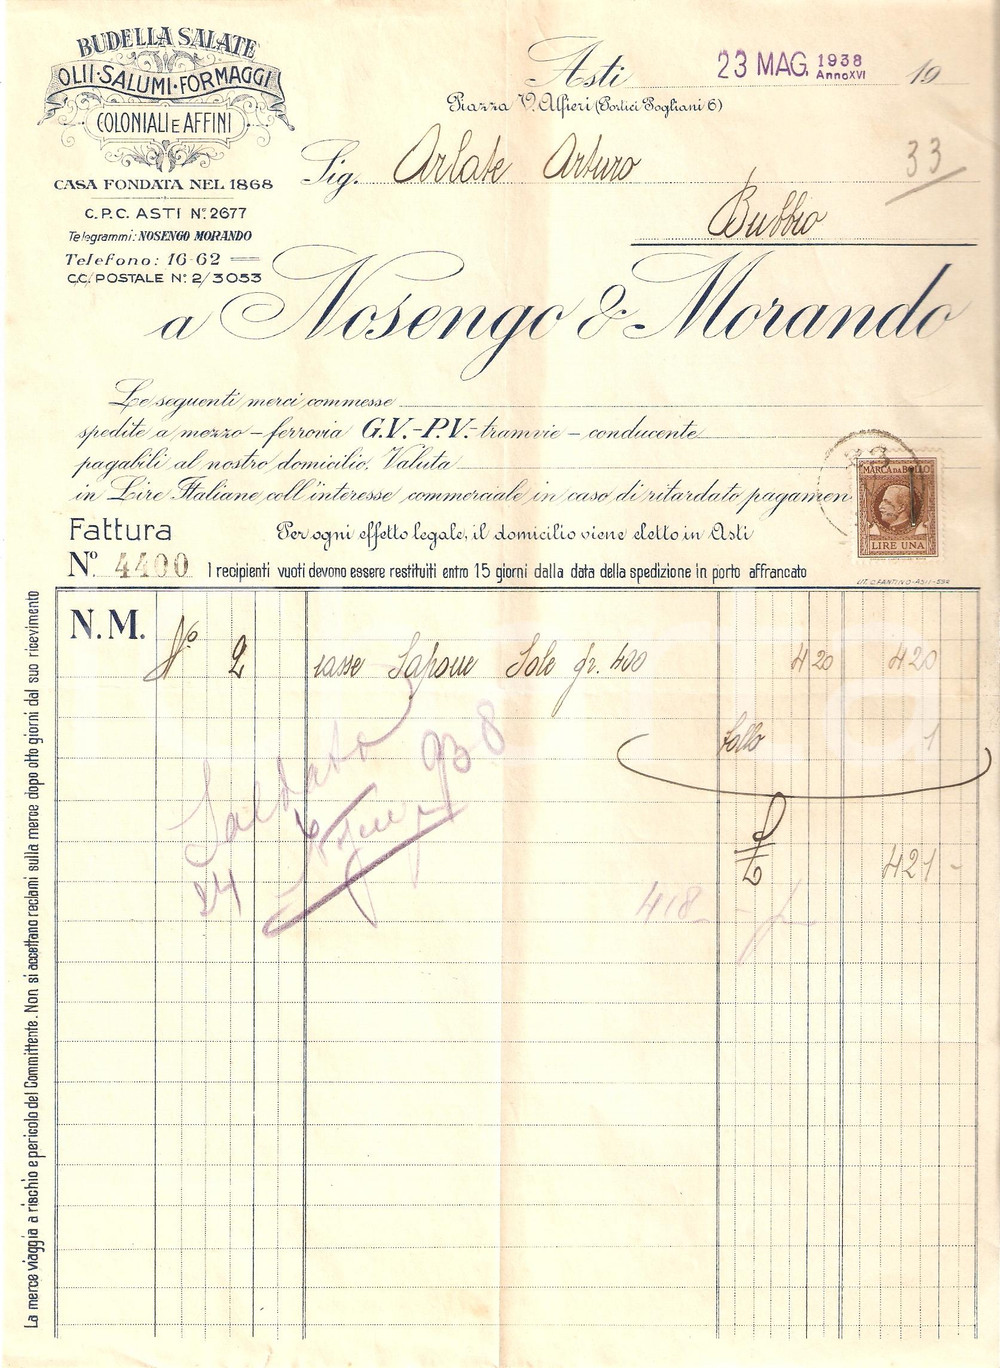 BUDELLA SALATE
OLII·SALUMI·FORMAGGI
COLONIALI E AFFINI
CASA FONDATA NEL 1868
C.P.C. ASTI Nº 2677
Telegrammi: NOSENGO MORANDO
Telefono: 16-62
C.C. POSTALE Nº 2/3053
Asti 23 MAG. 1938 Anno XVI 19
Piazza V. Alfieri (Portici Pogliani 6)
Sig. Arlate Arturo 33
Bubbio
a Nosengo & Morando
Le seguenti merci commesse
spedite a mezzo - ferrovia G.V.-P.V.- tramvie - conducente
pagabili al nostro domicilio. Valuta
in Lire Italiane coll'interesse commerciale in caso di ritardato pagamen
MARCA DA BOLLO
LIRE UNA
Fattura Per ogni effetto legale, il domicilio viene eletto in Asti
Nº 4400 I recipienti vuoti devono essere restituiti entro 15 giorni dalla data della spedizione in porto affrancato
LIT. O. FANTINO-ASTI-
N. M.
Nº 2 casse Sapone Sole gr. 400 420 420
bollo 1
421 -
Saldato
24 938
418
La merce viaggia a rischio e pericolo del Committente. Non si accettano reclami sulla merce dopo otto giorni dal suo ricevimento